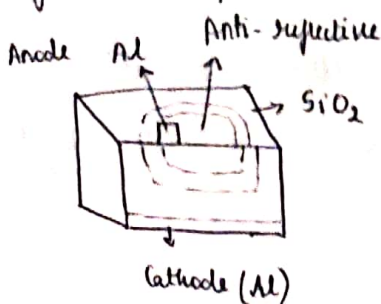 Anode Al Anti-reflective
SiO2
Cathode (Al)